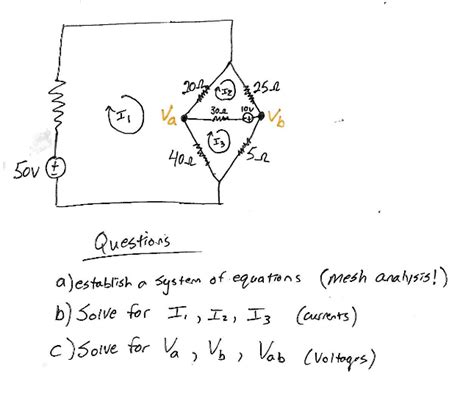 20Ω I2 25Ω
30Ω 10V
I1 Va Vb
I3
40Ω 5Ω
50V
Questions
a) establish a system of equations (mesh analysis!)
b) Solve for I1, I2, I3 (currents)
c) Solve for Va, Vb, Vab (Voltages)